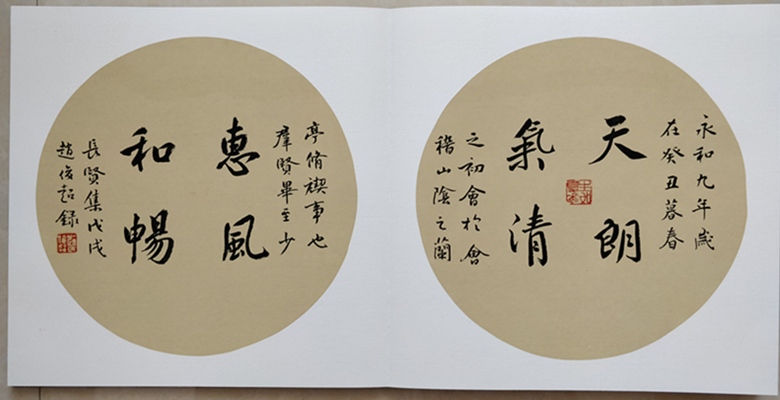 永和九年歲
在癸丑暮春
天朗
氣清
之初會於會
稽山陰之蘭
亭脩禊事也
羣賢畢至少
惠風
和暢
長賢集戊戌
趙俊錄